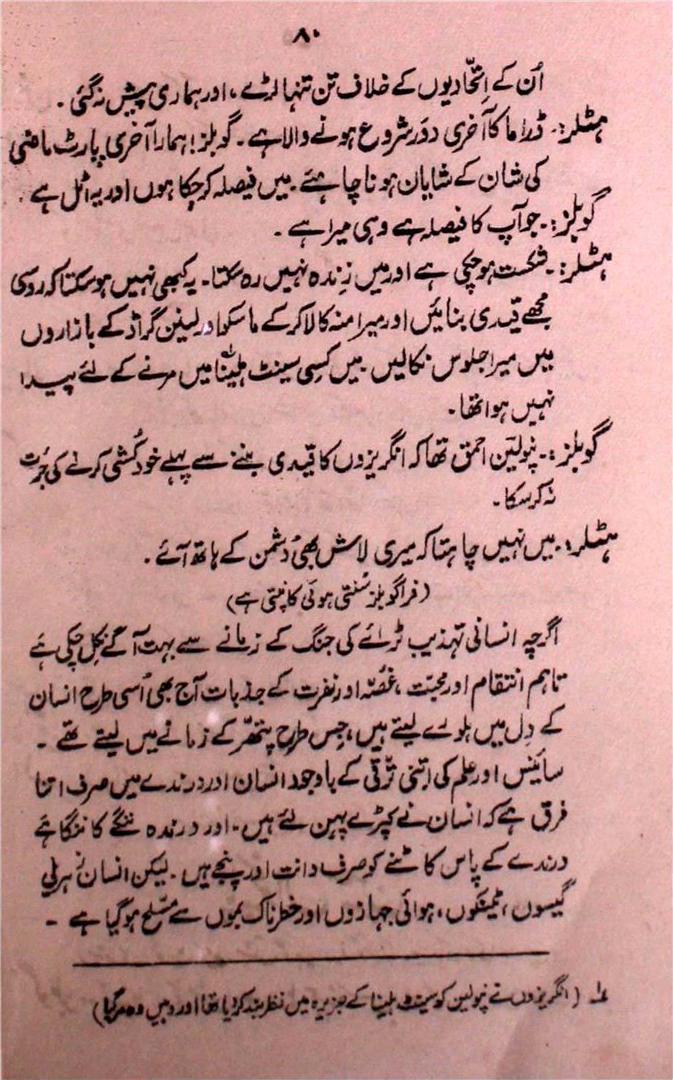 ۸۰
اُن کے اِتحّادیوں کے خلاف تن تنہا لڑے، اور ہماری پیش نہ گئی۔
ہٹلر:۔ ڈراما کا آخری دَور شروع ہونے والا ہے۔ گوبلز! ہمارا آخری پارٹ ماضی
کی شان کے شایان ہونا چاہئے۔ میں فیصلہ کر چکا ہوں اور یہ اٹل ہے
گوبلز:۔ جو آپ کا فیصلہ ہے وہی میرا ہے۔
ہٹلر:۔ شکست ہو چکی ہے اور میں زندہ نہیں رہ سکتا۔ یہ کبھی نہیں ہو سکتا کہ روسی
مجھے قیدی بنائیں اور میرا منہ کالا کر کے ماسکو اور لینن گراڈ کے بازاروں
میں میرا جلوس نکالیں۔ میں کسی سینٹ ہلینا میں مرنے کے لئے پیدا
نہیں ہوا تھا۔
گوبلز:۔ نپولین احمق تھا کہ انگریزوں کا قیدی بننے سے پہلے خودکُشی کرنے کی جرُت
نہ کر سکا۔
ہٹلر:۔ میں نہیں چاہتا کہ میری لاش بھی دشمن کے ہاتھ آئے۔
(فراگوبلز سُنتی ہوئی کانپتی ہے)
اگرچہ انسانی تہذیب ٹرائے کی جنگ کے زمانے سے بہت آگے نکل چکی ہے
تاہم انتقام اور محبّت، غصّہ اور نفرت کے جذبات آج بھی اُسی طرح انسان
کے دِل میں ہلورے لیتے ہیں، جس طرح پتھّر کے زمانے میں لیتے تھے۔
سائنس اور علم کی اِتنی ترّقی کے باوجود انسان اور درندے میں صرف اتنا
فرق ہے کہ انسان نے کپڑے پہن لئے ہیں۔ اور درندہ ننگے کا ننگا ہے
درندے کے پاس کاٹنے کو صرف دانت اور پنجے ہیں۔ لیکن انسان زہریلی
گیسوں، ٹینکوں، ہوائی جہازوں اور خطرناک بموں سے مسّلح ہو گیا ہے۔
؎۱ (انگریزوں نے نپولین کو سینٹ ہلینا کے جزیرہ میں نظر بند کر دیا تھا اور وہیں وہ مر گیا)